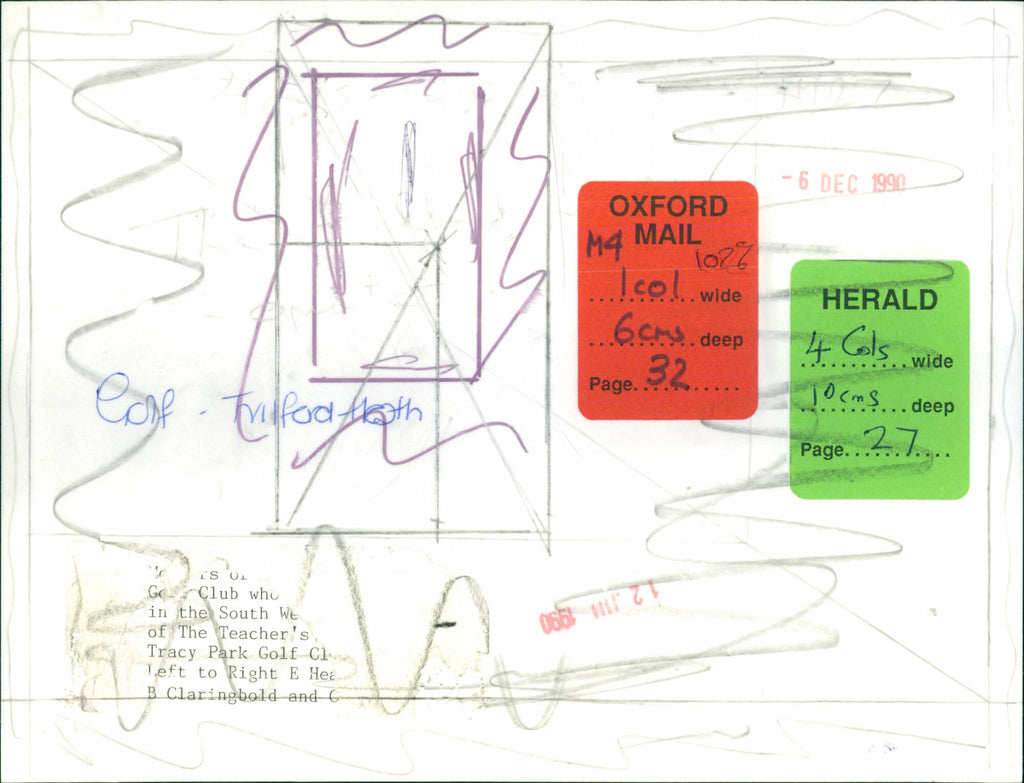 - 6 DEC 1990
OXFORD
MAIL
M4
102%
1 col wide
6cms deep
Page 32
HERALD
4 Cols wide
10 cms deep
Page 27
Golf - Frilford Heath
12 JUN 1990
Club who
in the South We
of The Teacher's
Tracy Park Golf Cl
Left to Right E Hea
B Claringbold and C